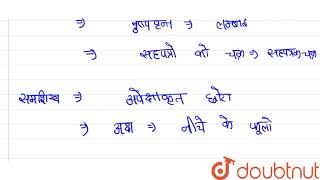 ⇒ पुष्पवृन्त ⇒ लम्बाई
⇒ सहपत्रो को चक्र ⇒ सहपत्रक चक्र
समशिख ⇒ अपेक्षाकृत छोटा
⇒ अक्ष ⇒ नीचे के फूलो
doubtnut